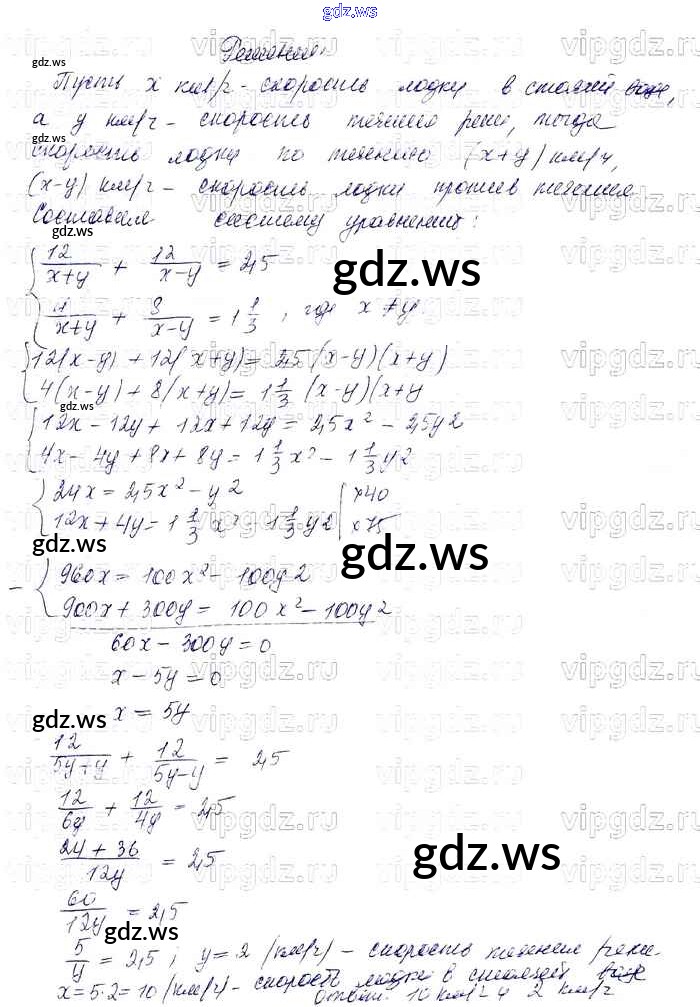 gdz.ws
Решение.
Пусть x км/ч - скорость лодки в стоячей воде,
а y км/ч - скорость течения реки, тогда
скорость лодки по течению (x+y) км/ч,
(x-y) км/ч - скорость лодки против течения
Составим систему уравнений:
12/(x+y) + 12/(x-y) = 2,5
4/(x+y) + 8/(x-y) = 1 1/3, где x ≠ y.
12(x-y) + 12(x+y) = 2,5(x-y)(x+y)
4(x-y) + 8(x+y) = 1 1/3 (x-y)(x+y
12x - 12y + 12x + 12y = 2,5x² - 2,5y2
4x - 4y + 8x + 8y = 1 1/3 x² - 1 1/3 y2
24x = 2,5x² - y2 | ×40
12x + 4y = 1 1/3 x² - 1 1/3 y2 | ×75
- 960x = 100x² - 100y2
900x + 300y = 100x² - 100y2
60x - 300y = 0
x - 5y = 0
x = 5y
12/(5y+y) + 12/(5y-y) = 2,5
12/6y + 12/4y = 2,5
(24 + 36)/12y = 2,5
60/12y = 2,5
5/y = 2,5; y = 2 (км/ч) - скорость течения реки.
x = 5·2 = 10 (км/ч) - скорость лодки в стоячей воде
Ответ: 10 км/ч и 2 км/ч